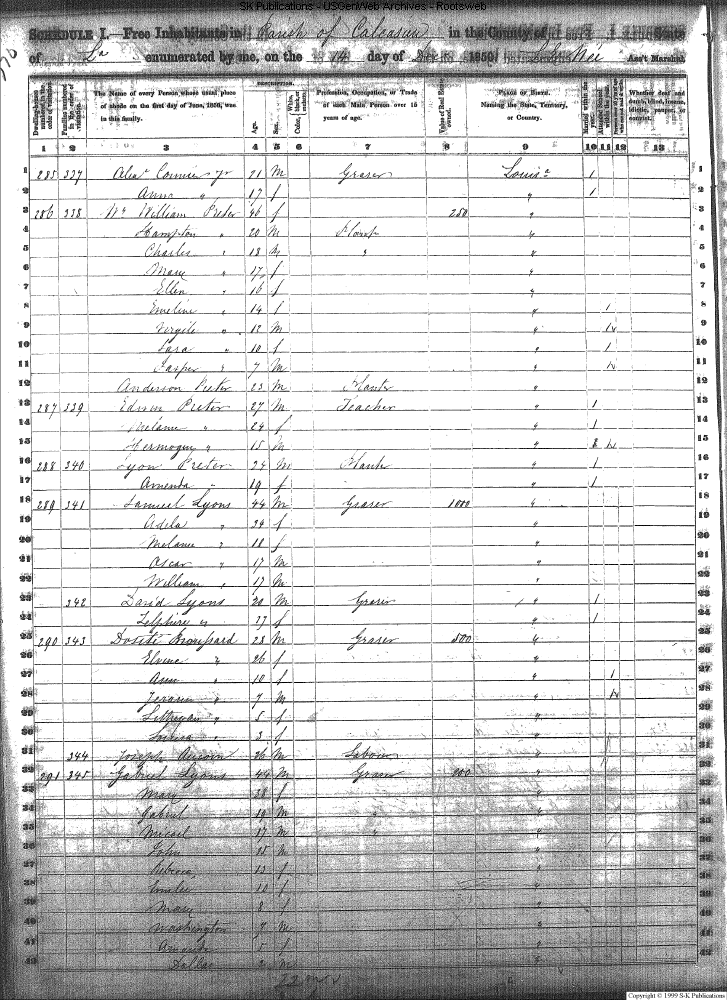 SK Publications - USGenWeb Archives - Rootsweb
SCHEDULE I.—Free Inhabitants in Parish of Calcasieu in the County of State
of La enumerated by me, on the 14 day of 1850. Ass't Marshal.
Dwelling-houses numbered in the order of visitation.
Families numbered in the order of visitation.
The Name of every Person whose usual place of abode on the first day of June, 1850, was in this family.
DESCRIPTION.
Age.
Sex.
Color, White, black, or mulatto.
Profession, Occupation, or Trade of each Male Person over 15 years of age.
Value of Real Estate owned.
PLACE OF BIRTH. Naming the State, Territory, or Country.
Married within the year.
Attended School within the year.
Whether deaf and dumb, blind, insane, idiotic, pauper, or convict.
1 2 3 4 5 6 7 8 9 10 11 12 13
1 285 337 Alexr Cormier Jr 21 M Graser Louisa 1 1
2 Anna " 17 f " 1 2
3 286 338 William Preter 46 f 250 " 3
4 Hampton " 20 M " 4
5 Charles " 18 M " " 5
6 Mary " 17 f " 6
7 Ellen " 16 f " 7
8 Emeline " 14 f " 1 8
9 Virgile " 12 M " 1 9
10 Sara " 10 f " 1 10
11 Jasper " 7 M " 1 11
12 Anderson Preter 23 M Planter " 12
13 287 339 Edwin Preter 27 M Teacher " 1 13
14 Melanie " 24 f " 1 14
15 Hermogene " 15 M " 15
16 288 340 Lyon Preter 24 M Plante " 1 16
17 Amenda " 19 f " 1 17
18 289 341 Samuel Lyons 44 M Graser 1000 " 18
19 Adela " 34 f " 19
20 Melanie " 18 f " 20
21 Oscar " 17 M " 21
22 William " 17 M " 22
23 342 David Lyons 20 M Graser " 1 23
24 Zelphire " 17 f " 1 24
25 290 343 Dosité Broussard 28 M Graser 500 " 25
26 Elvina " 26 f " 26
27 Ann " 10 f " 1 27
28 " 7 M " 1 28
29 " 5 f " 29
30 " 3 f " 30
31 344 Joseph 26 M Labour " 31
32 291 345 Gabriel Lyons 44 M Graser " 32
33 Mary 38 f " 33
34 Gabriel 19 M " " 34
35 Micael 17 M " " 35
36 John 15 M " 36
37 Rebecca 13 f " 37
38 10 f " 38
39 Mary 8 f " 39
40 Washington 7 M " 40
41 Amanda 5 f " 41
42 Dallas M " 42
Copyright © 1999 S-K Publications